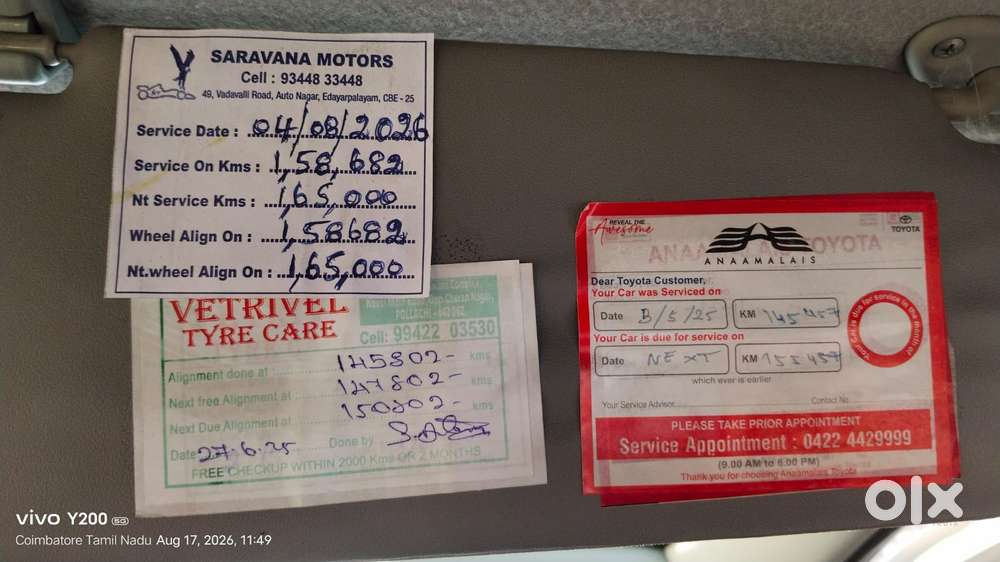 SARAVANA MOTORS
Cell : 93448 33448
49, Vadavalli Road, Auto Nagar, Edayarpalayam, CBE - 25
Service Date : 04/08/2026
Service On Kms : 1,58,682
Nt Service Kms : 1,65,000
Wheel Align On : 1,58682
Nt.wheel Align On : 1,65,000
VETRIVEL
TYRE CARE
POLLACHI - 642 002
Cell: 99422 03530
Alignment done at : 145802- kms
Next free Alignment at : 147802- kms
Next Due Alignment at : 150802- kms
Date 27.6.25 Done by
FREE CHECKUP WITHIN 2000 Kms OR 2 MONTHS
REVEAL THE
Awesome
TOYOTA
ANAAMALAIS
Dear Toyota Customer,
Your Car was Serviced on
Date B/5/25 KM 145457
Your Car is due for service on
Date NEXT KM 155457
which ever is earlier
Your Car is due for service in the month of
Your Service Advisor Contact No
PLEASE TAKE PRIOR APPOINTMENT
Service Appointment : 0422 4429999
(9.00 AM to 6.00 PM)
Thank you for choosing Anaamalais Toyota
olx
vivo Y200 5G
Coimbatore Tamil Nadu Aug 17, 2026, 11:49